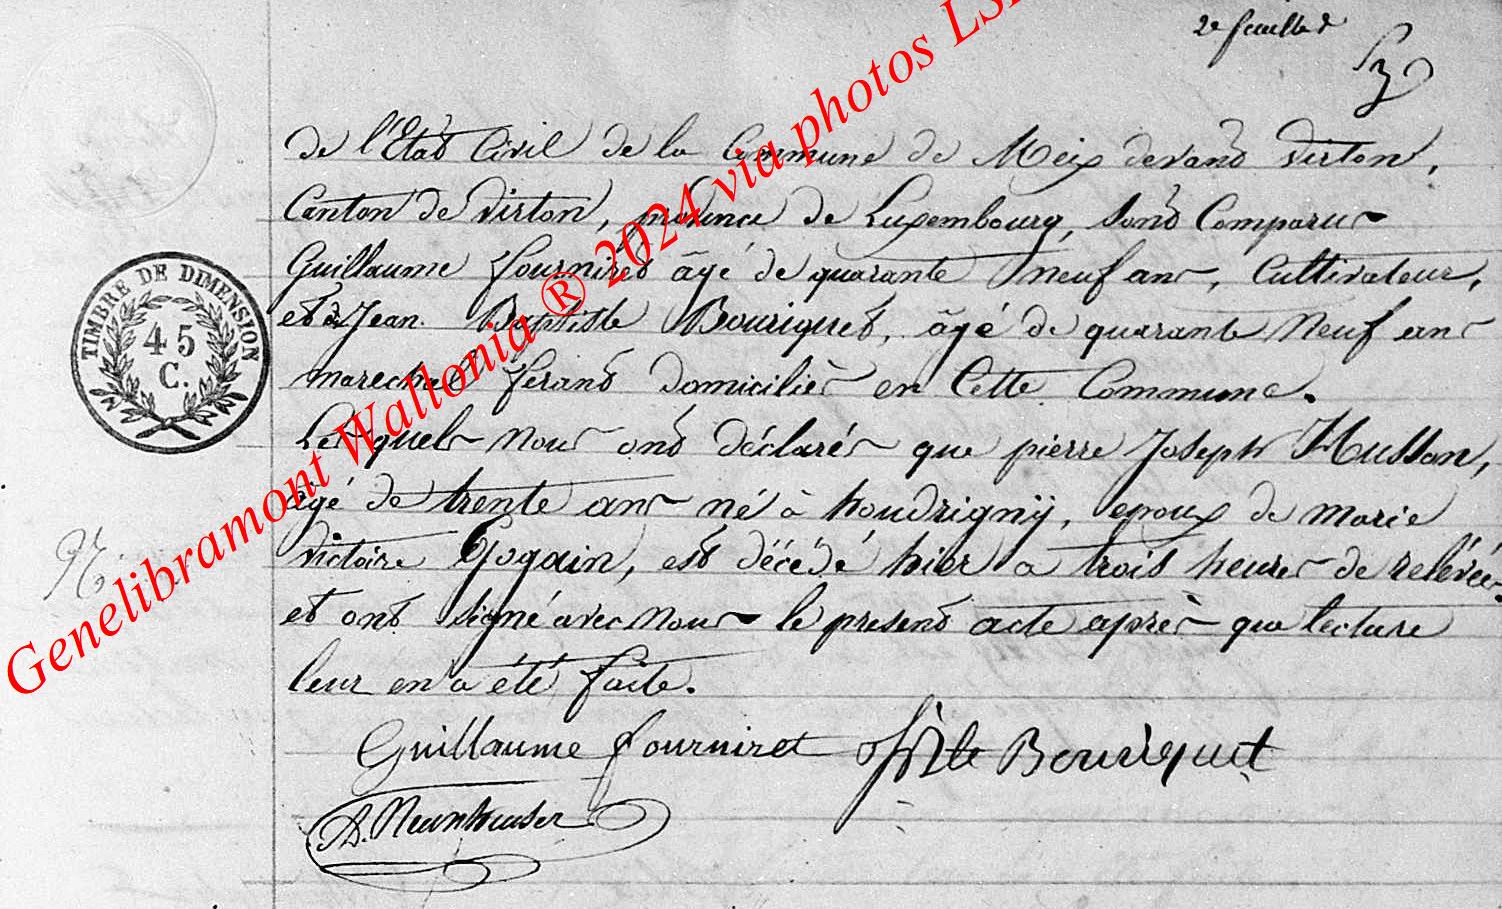 2e feuillet
3
de l'Etat Civil de la Commune de Meix devand Virton,
Canton de Virton, province de Luxembourg, sont Comparus
Guillaume fourniret âgé de quarante neuf ans, Cultivateur,
et Jean Baptiste Bouriquet, âgé de quarante Neuf ans
marechal ferand domiciliés en Cette Commune.
Lesquels nous ont déclarés que pierre Joseph Husson,
âgé de trente ans né à houdrignÿ, epoux de marie
victoire Gogain, est décédé hier a trois heures de relévée.
et ont signé avec nous le present acte après que lecture
leur en a été faite.
Guillaume fourniret JBte Bouriquet
TIMBRE DE DIMENSION
45
C.
Genelibramont Wallonia ® 2024 via photos